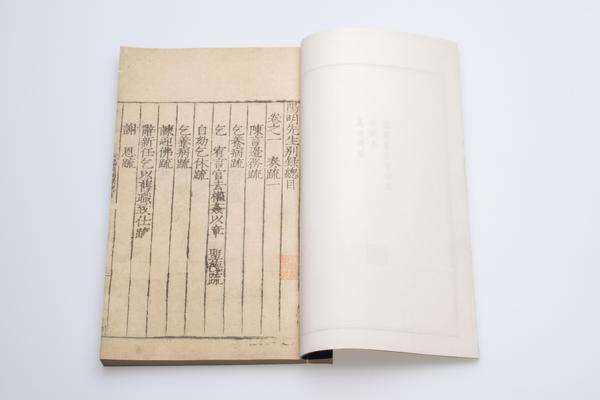 陽明先生别録總目
卷之一　奏疏一
陳言邊務疏
乞養病疏
乞　宥言官去權姦以章　聖德疏
自劾乞休疏
乞養病疏
諫迎佛疏
辭新任乞以舊職致仕疏
謝　恩疏